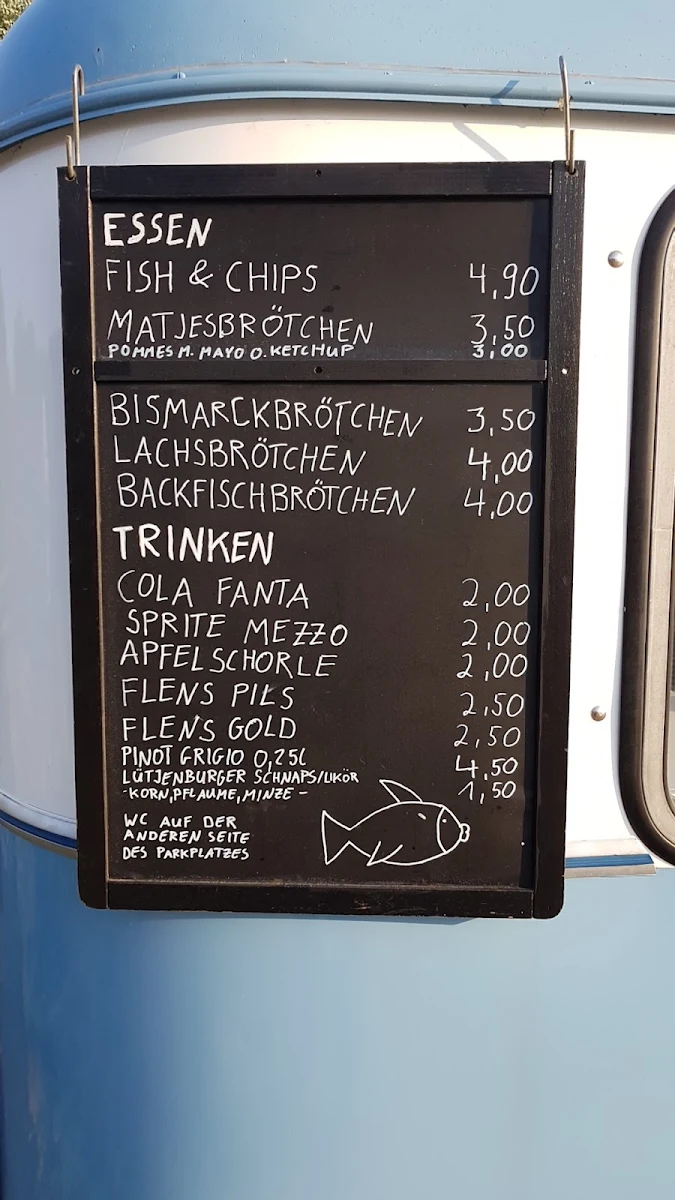 ESSEN
FISH & CHIPS 4,90
MATJESBRÖTCHEN 3,50
POMMES M. MAYO O. KETCHUP 3,00
BISMARCKBRÖTCHEN 3,50
LACHSBRÖTCHEN 4,00
BACKFISCHBRÖTCHEN 4,00
TRINKEN
COLA FANTA 2,00
SPRITE MEZZO 2,00
APFELSCHORLE 2,00
FLENS PILS 2,50
FLENS GOLD 2,50
PINOT GRIGIO 0,25L 4,50
LÜTJENBURGER SCHNAPS/LIKÖR 1,50
-KORN,PFLAUME,MINZE-
WC AUF DER
ANDEREN SEITE
DES PARKPLATZES